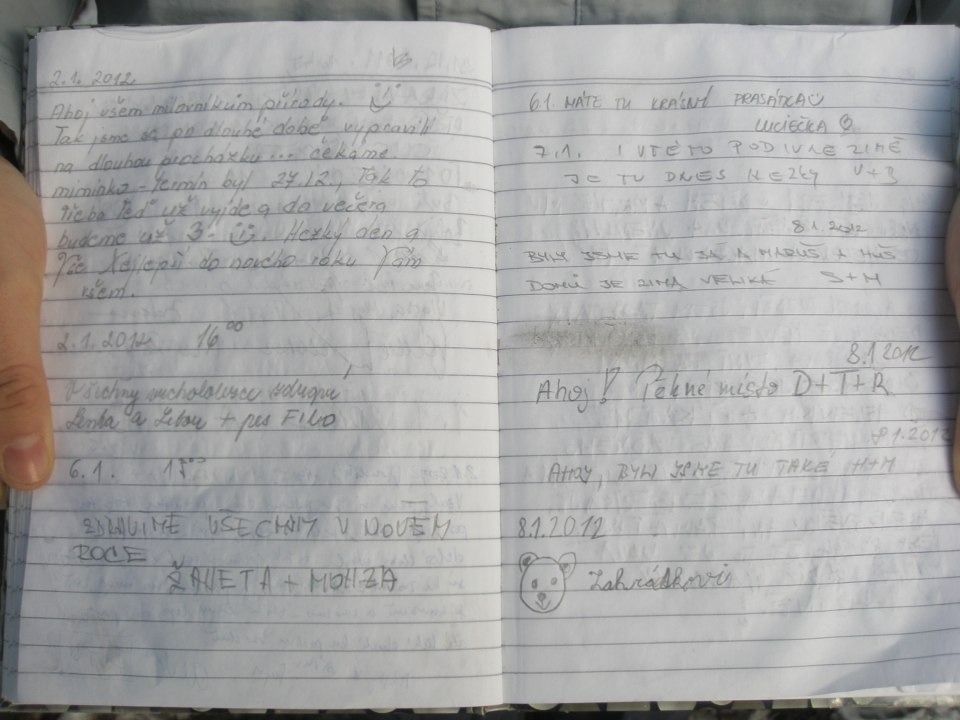 2.1. 2012
Ahoj všem milovníkům přírody.
Tak jsme se po dlouhé době vypravili
na dlouhou procházku... čekáme
miminko - termín byl 27.12., tak to
třeba teď už vyjde a do večera
budeme už 3 - Hezký den a
Vše Nejlepší do nového roku Vám
všem.
2.1.2012 16⁰⁰
Všechny zdraví
Lenka a + pes FILO
6.1.
ZDRAVÍME VŠECHNY V NOVÉM
ROCE
ŽANETA + HONZA
6.1. MÁTE TU KRÁSNÝ PRASÁTKA
LUCIEČKA
7.1. I V TÉTO PODIVNÉ ZIMĚ
JE TU DNES HEZKY V+B
8.1.2012
BYLY JSME TU JÁ A MARUŠ A MUŠ
DOMŮ JE ZIMA VELIKÁ S+M
8.1.2012
Ahoj! Pěkné místo D+T+R
8.1.2012
AHOJ, BYLI JSME TU TAKÉ H+M
8.1.2012
Zahrádkovi